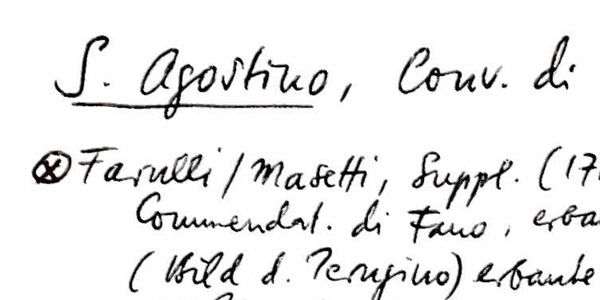 S. Agostino, Conv. di
ⓧ Farulli/Masetti, Suppl. (17
Commendat. di Fano, erba
(Bild d. Perugino) erbaute